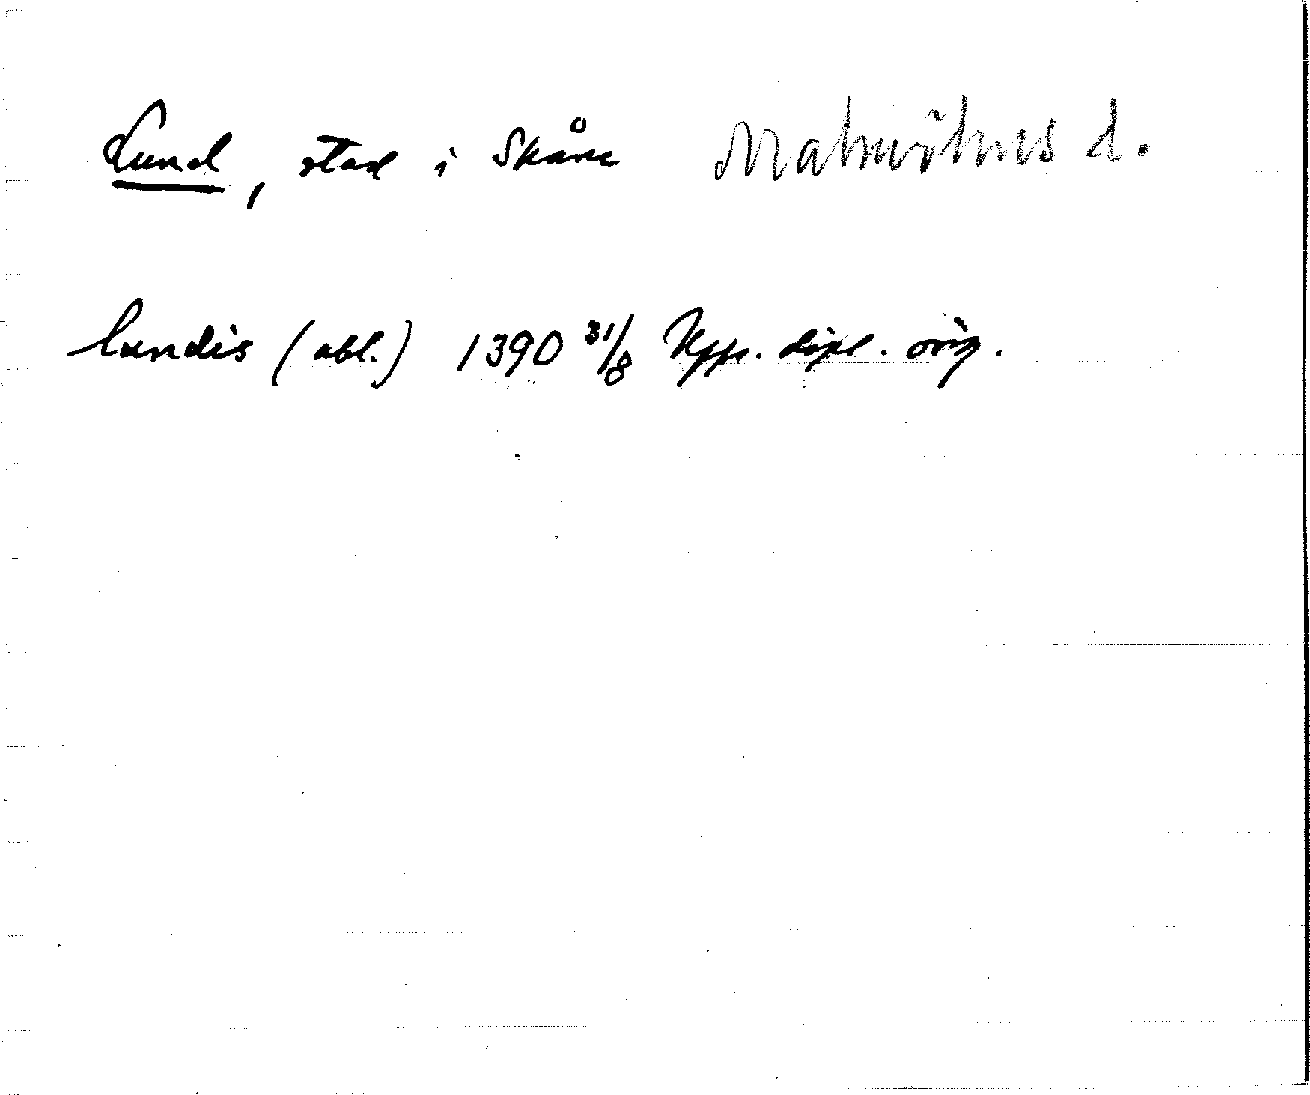 Lund, stad i Skåne Malmöhus l.
lundis (abl.) 1390 31/8 Upps. dipl. orig.